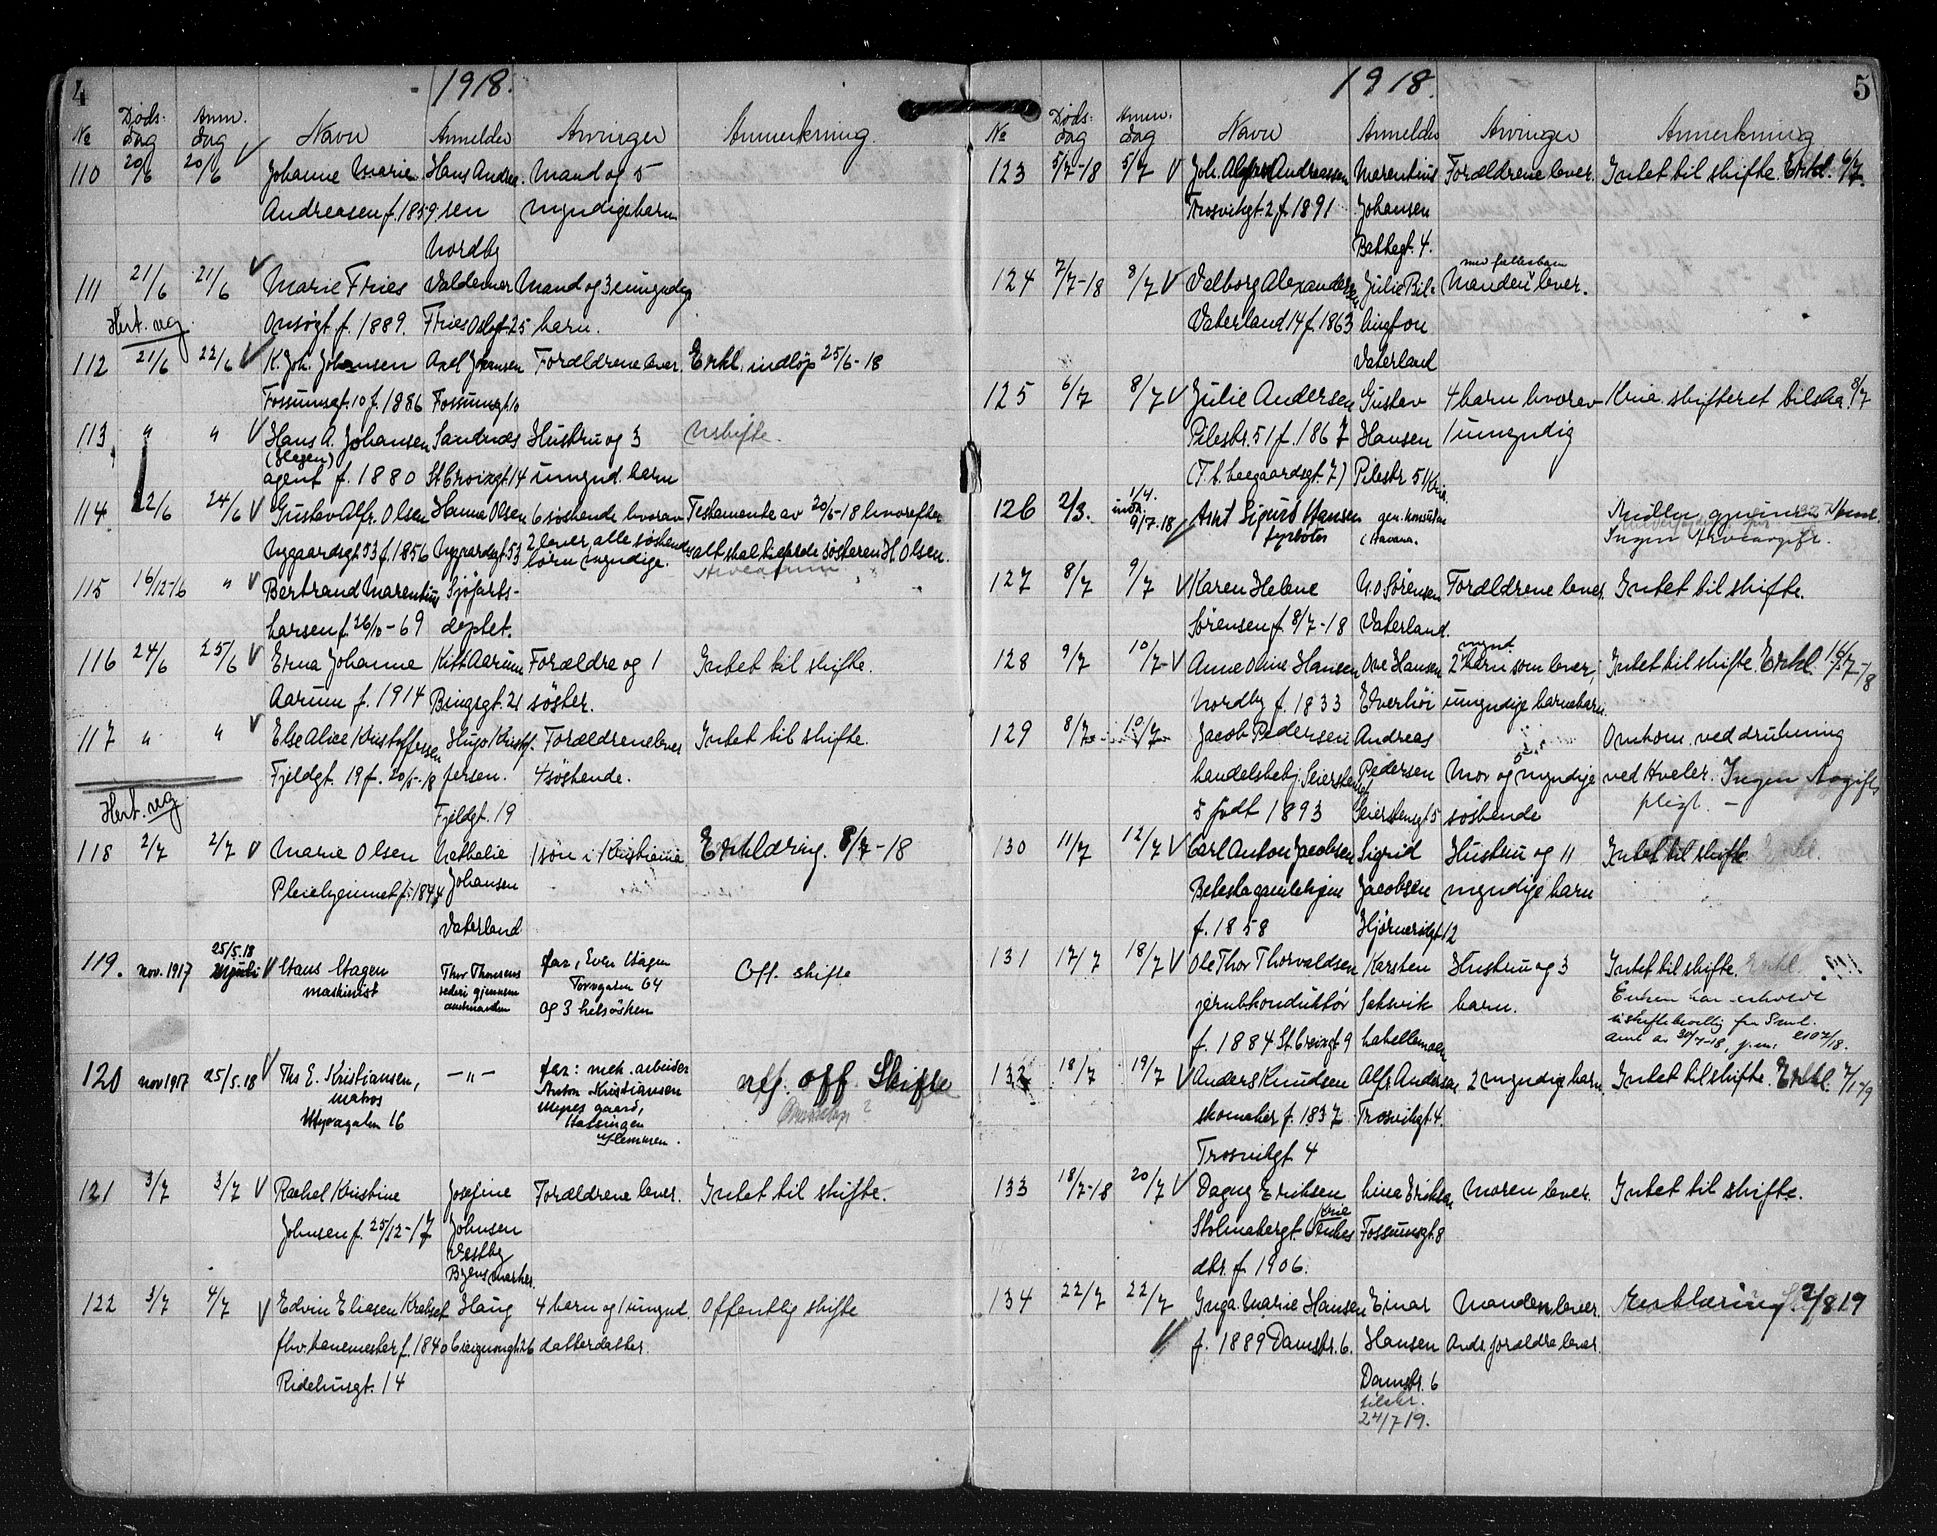 4 1918.
№ Døds- dag Anm. dag Navn Anmelder Arvinger Anmerkning.
110 20/6 20/6 V Johanne Marie Hans Andrea- Mand og 5
Andreasen f. 1859. sen myndige barn
Nordby
111 21/6 21/6 V Marie Fries Valdemar Mand og 3 umyndige
Onsøgt. f. 1889. Fries 25 barn.
Hert. ug.
112 21/6 22/6 V K. Joh. Johansen Axel Johansen Forældrene lever. Erkl. indløp 25/6-18
Fossumsgt. 10 f. 1886 Fossumgt. 10
113 " " V Hans A. Johansen Sandnes Hustru og 3 Uskifte.
(Hegen)
agent f. 1880 St. Croixgt. 14 umynd. barn
114 22/6 24/6 V Gustav Alfr. Olsen Hanna Olsen 6 søskende hvorav Testamente av 20/6-18 hvorefter
Nygaardsgt. 53 f. 1856 Nygaardsgt. 53 2 lever, alle søskende- alt skal tilfalde søsteren H. Olsen.
børn myndige.
115 16/12-16 " V Bertrand Marentius Sjøfarts-
Larsen f. 26/10-69 deptet.
116 24/6 25/6 V Erna Johanne Aarum Forældre og 1 Intet til skifte.
Aarum f. 1914 Bingsgt. 21 søster.
117 " " V Else Alice Kristoffersen Hugo Kristof- Forældrene lever Intet til skifte.
Fjeldgt. 19 f. 20/5-18 fersen. 4 søskende.
Fjeldgt. 19
Hert. ug
118 2/7 2/7 V Marie Olsen Nathalie 1 søn i Kristiania Erklæring. 8/7-18
Pleiehjemmet f. 1844 Johansen
Vaterland
25/5.18
119. nov. 1917 V Hans Hagen Thor Thoresens far, Even Hagen Off. skifte
maskinist rederi gjennem Torvgaten 64
og 3 helsøsken
120 nov 1917 25/5.18 V Ths E. Kristiansen, -"- far: mek. arbeider off. Skifte
matros Anton Kristiansen
Myragaten 16 gaard,
Glemmen.
121 3/7 3/7 V Rachel Kristine Josefine Forældrene lever. Intet til skifte.
Johnsen f. 25/12-17 Johnsen
Vestby
Byens marker.
122 3/7 4/7 V Edvin Eliesen Krabsef Haug 4 barn og 1 umynd. Offentlig skifte
fhv. banemester f. 1840 26 datterdatter.
Ridehusgt. 14
1918. 5
№ Døds- dag Anm. dag Navn Anmelder Arvinger Anmerkning
123 5/7-18 5/7 V Joh. Alfred Andreassen Marentius Forældrene lever. Intet til skifte. Erkl. 6/7.
Trosvikgt. 2 f. 1891 Johansen
Bakkegt. 4.
med fællesbarn
124 7/7-18 8/7 V Valborg Alexandersen Julie Bil- Manden lever.
Vaterland 14 f. 1863 lington
Vaterland
125 6/7 8/7 V Julie Andersen Gustav 4 barn hvorav Kria. skifteret tilskr. 8/7
Pilestr. 51 f. 1867 Hansen 1 umyndig
(T. t. Leegaardsgt. 7) Pilestr 51 Kria.
126 2/3. 1/4. indk. 9/7.18 Sigurd Hansen gen. konsulat Midler
fyrbøter Havana. Ingen Arveavgift.
127 8/7 9/7 V Karen Helene N. O. Sørensen Forældrene lever. Intet til skifte.
Sørensen f. 8/7-18 Vaterland.
128 9/7 10/7 V Anne Oline Hansen Ove Hansen 2 mynd barn som lever, Intet til skifte. Erkl. 16/7-18
Nordby f. 1833 Elverhøi umyndige barnebarn.
129 8/7 10/7 Jacob Pedersen Andreas Omkom. ved drukning
handelsbetj. Seierstensgt Pedersen Mor og myndige ved Hvaler. Ingen Avgifts
5 født 1893 Seierstensgt 5 søskende pligt. -
130 11/7 12/7 V Carl Anton Jacobsen Sigrid Hustru og 11 Intet til skifte Erkl.
Betesta gamlehjem Jacobsen myndige barn
f. 1858 12
131 17/7 18/7 V Ole Thor Thorvaldsen Karsten Hustru og 3 Intet til skifte. Erkl.
jernbkonduktør Saksvik barn. Enken har erholdt
f. 1884 St. Croixgt. 9 Labellemoen uskiftebevilling fra
30/7-18
132 18/7 19/7 V Anders Knudsen Alfr. Andersen 2 myndige barn. Intet til skifte. Erkl. 7/1-19
skomaker f. 1837 Trosvikgt. 4.
Trosvikgt. 4
133 18/7-18 20/7 V Dagny Eriksen Lina Eriksen Moren lever. Intet til skifte.
Holmabergt. 6 Fossumsgt. 8
dtr. f. 1906.
134 22/7 22/7 V Inga Marie Hansen Ejnar Manden lever. Erklæring 2/8 19
f. 1889 Damstr. 6. Hansen And. forældre lever.
Damstr. 6
tilskr.
24/7 19.